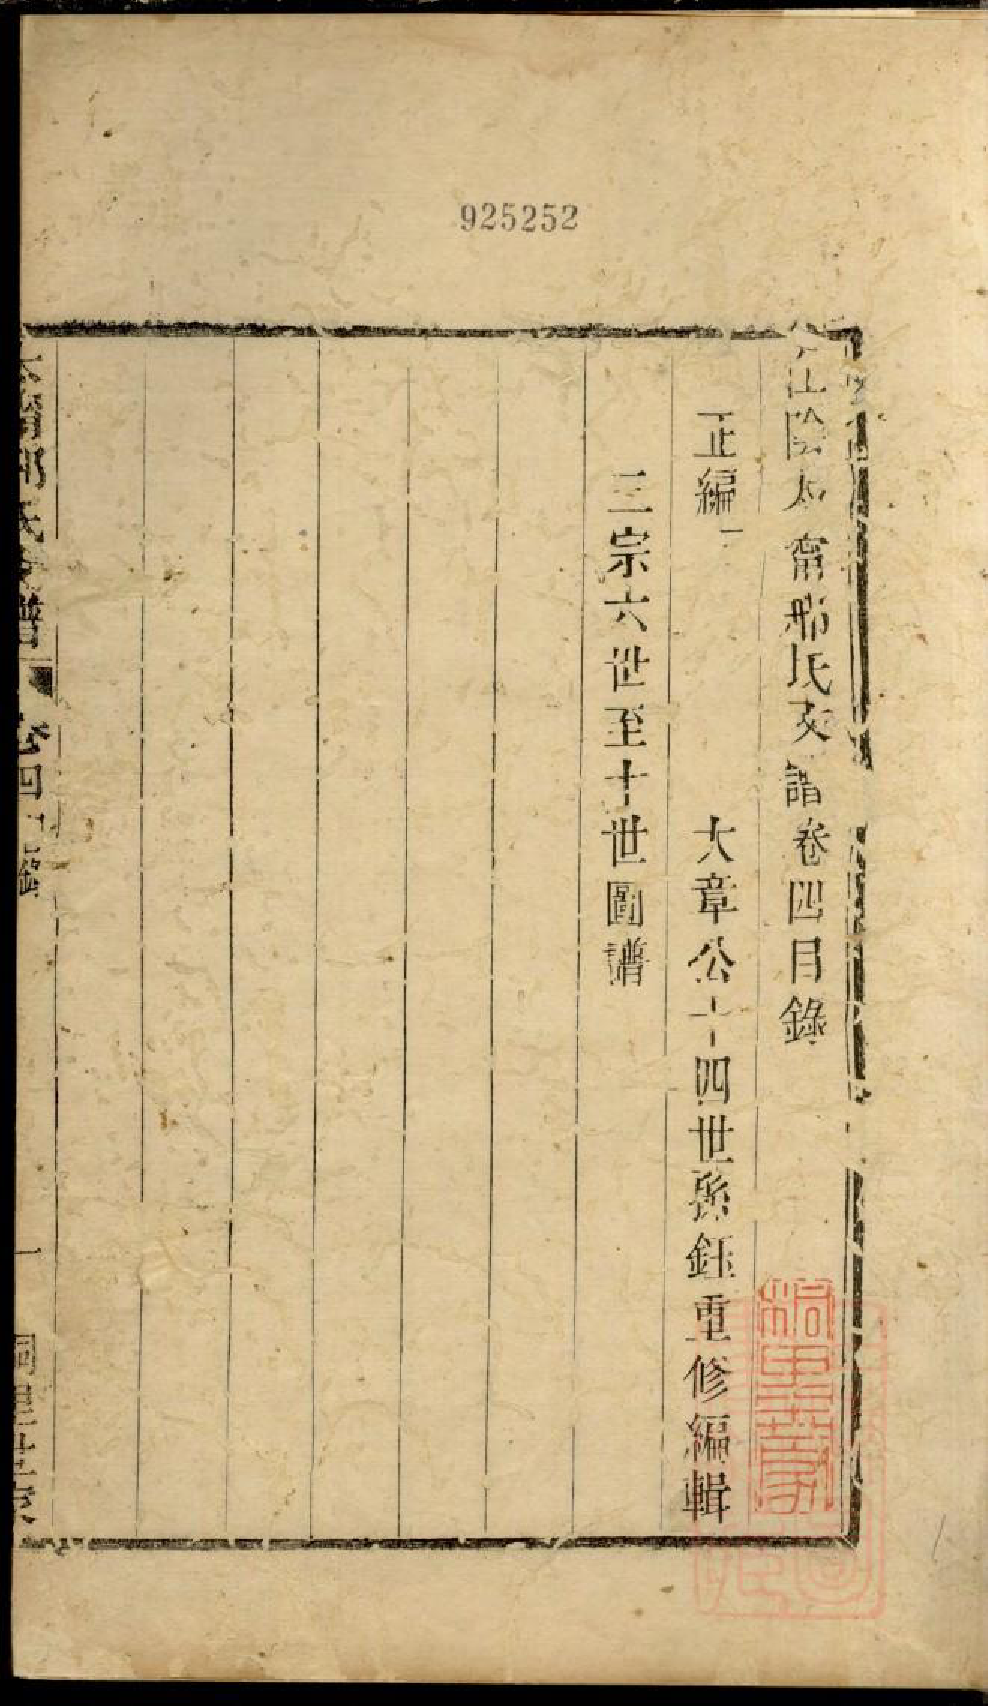 925252
江陰太甯邢氏支譜卷四目錄
正編一
大章公十四世孫鈺重修編輯
三宗六世至十世圖譜
太甯邢氏支譜
卷四目錄
一
桐里世家
桐里世家